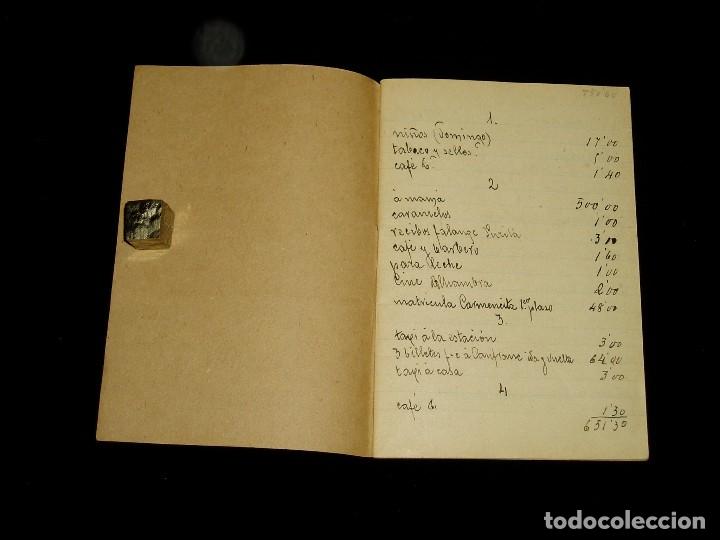 1.
niños (Domingo) 17'00
tabaco y sellos 5'00
café 1'40
2
á manja 500'00
caramelos 1'00
recibos falange 3
café y barbero 1'60
para leche 1'00
Cine Alhambra 2'00
matricula Carmencita 1.er plaso 48'00
3.
taxi á la estación 3'00
3 billetes á Canfranc ida y vuelta 64'00
taxi á casa 3'00
4
café 1'30
651'30
todocoleccion